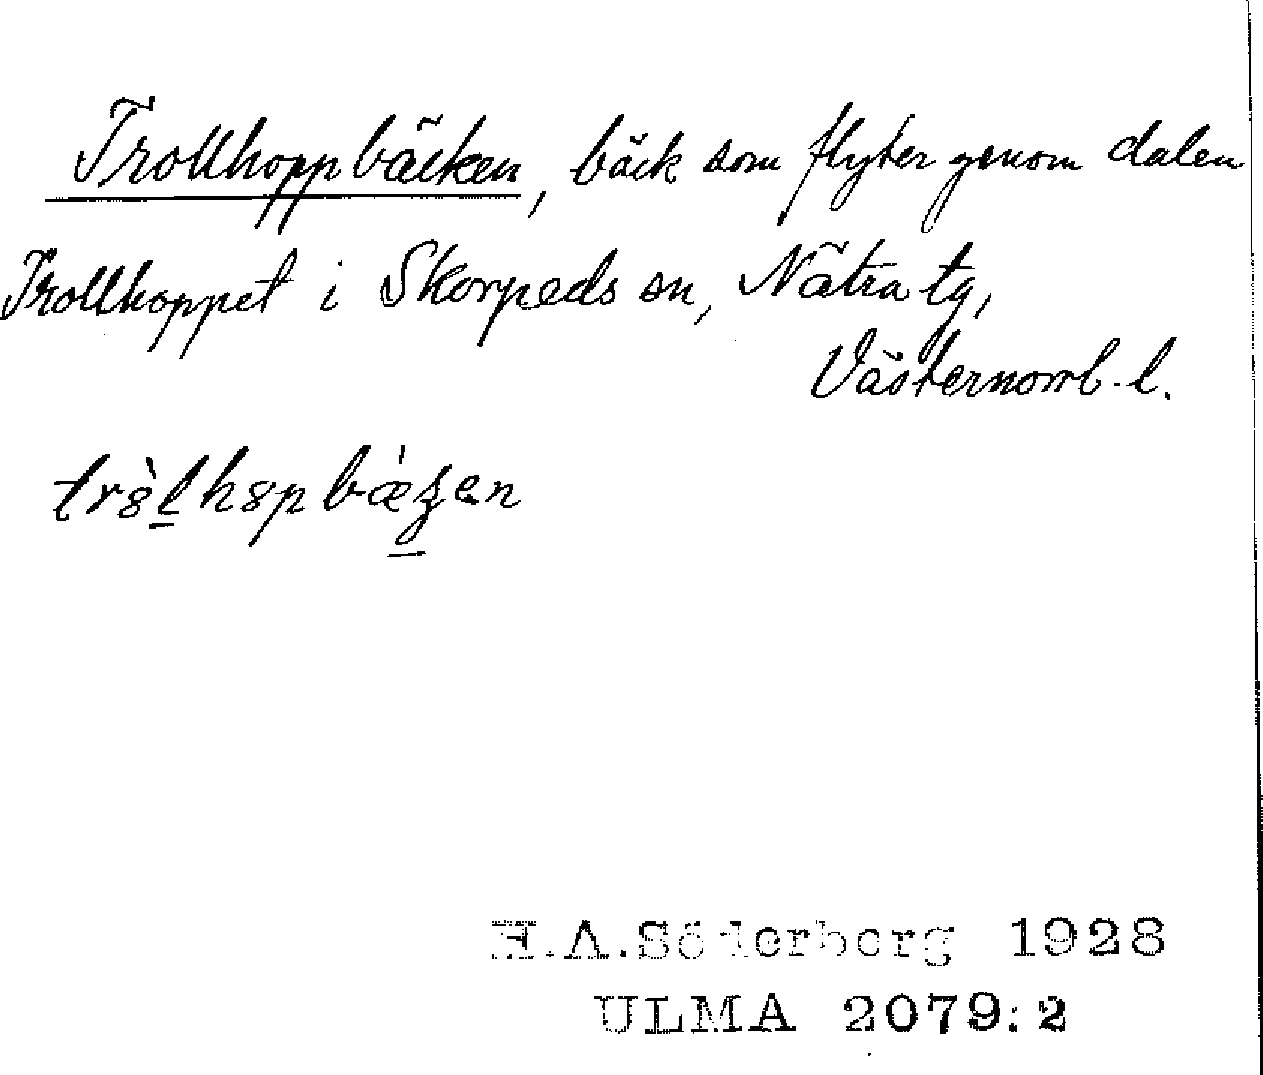 Trollhoppbäcken, bäck som flyter genom dalen
Trollhoppet i Skorpeds sn, Nätra tg,
Västernorrl. l.
H.A.Söderberg 1928
ULMA 2079:2